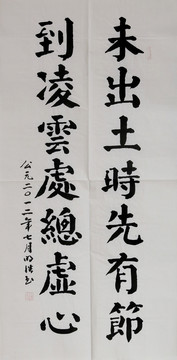 未出土時先有節
到凌雲處總虛心
公元二〇一二年七月明浩书